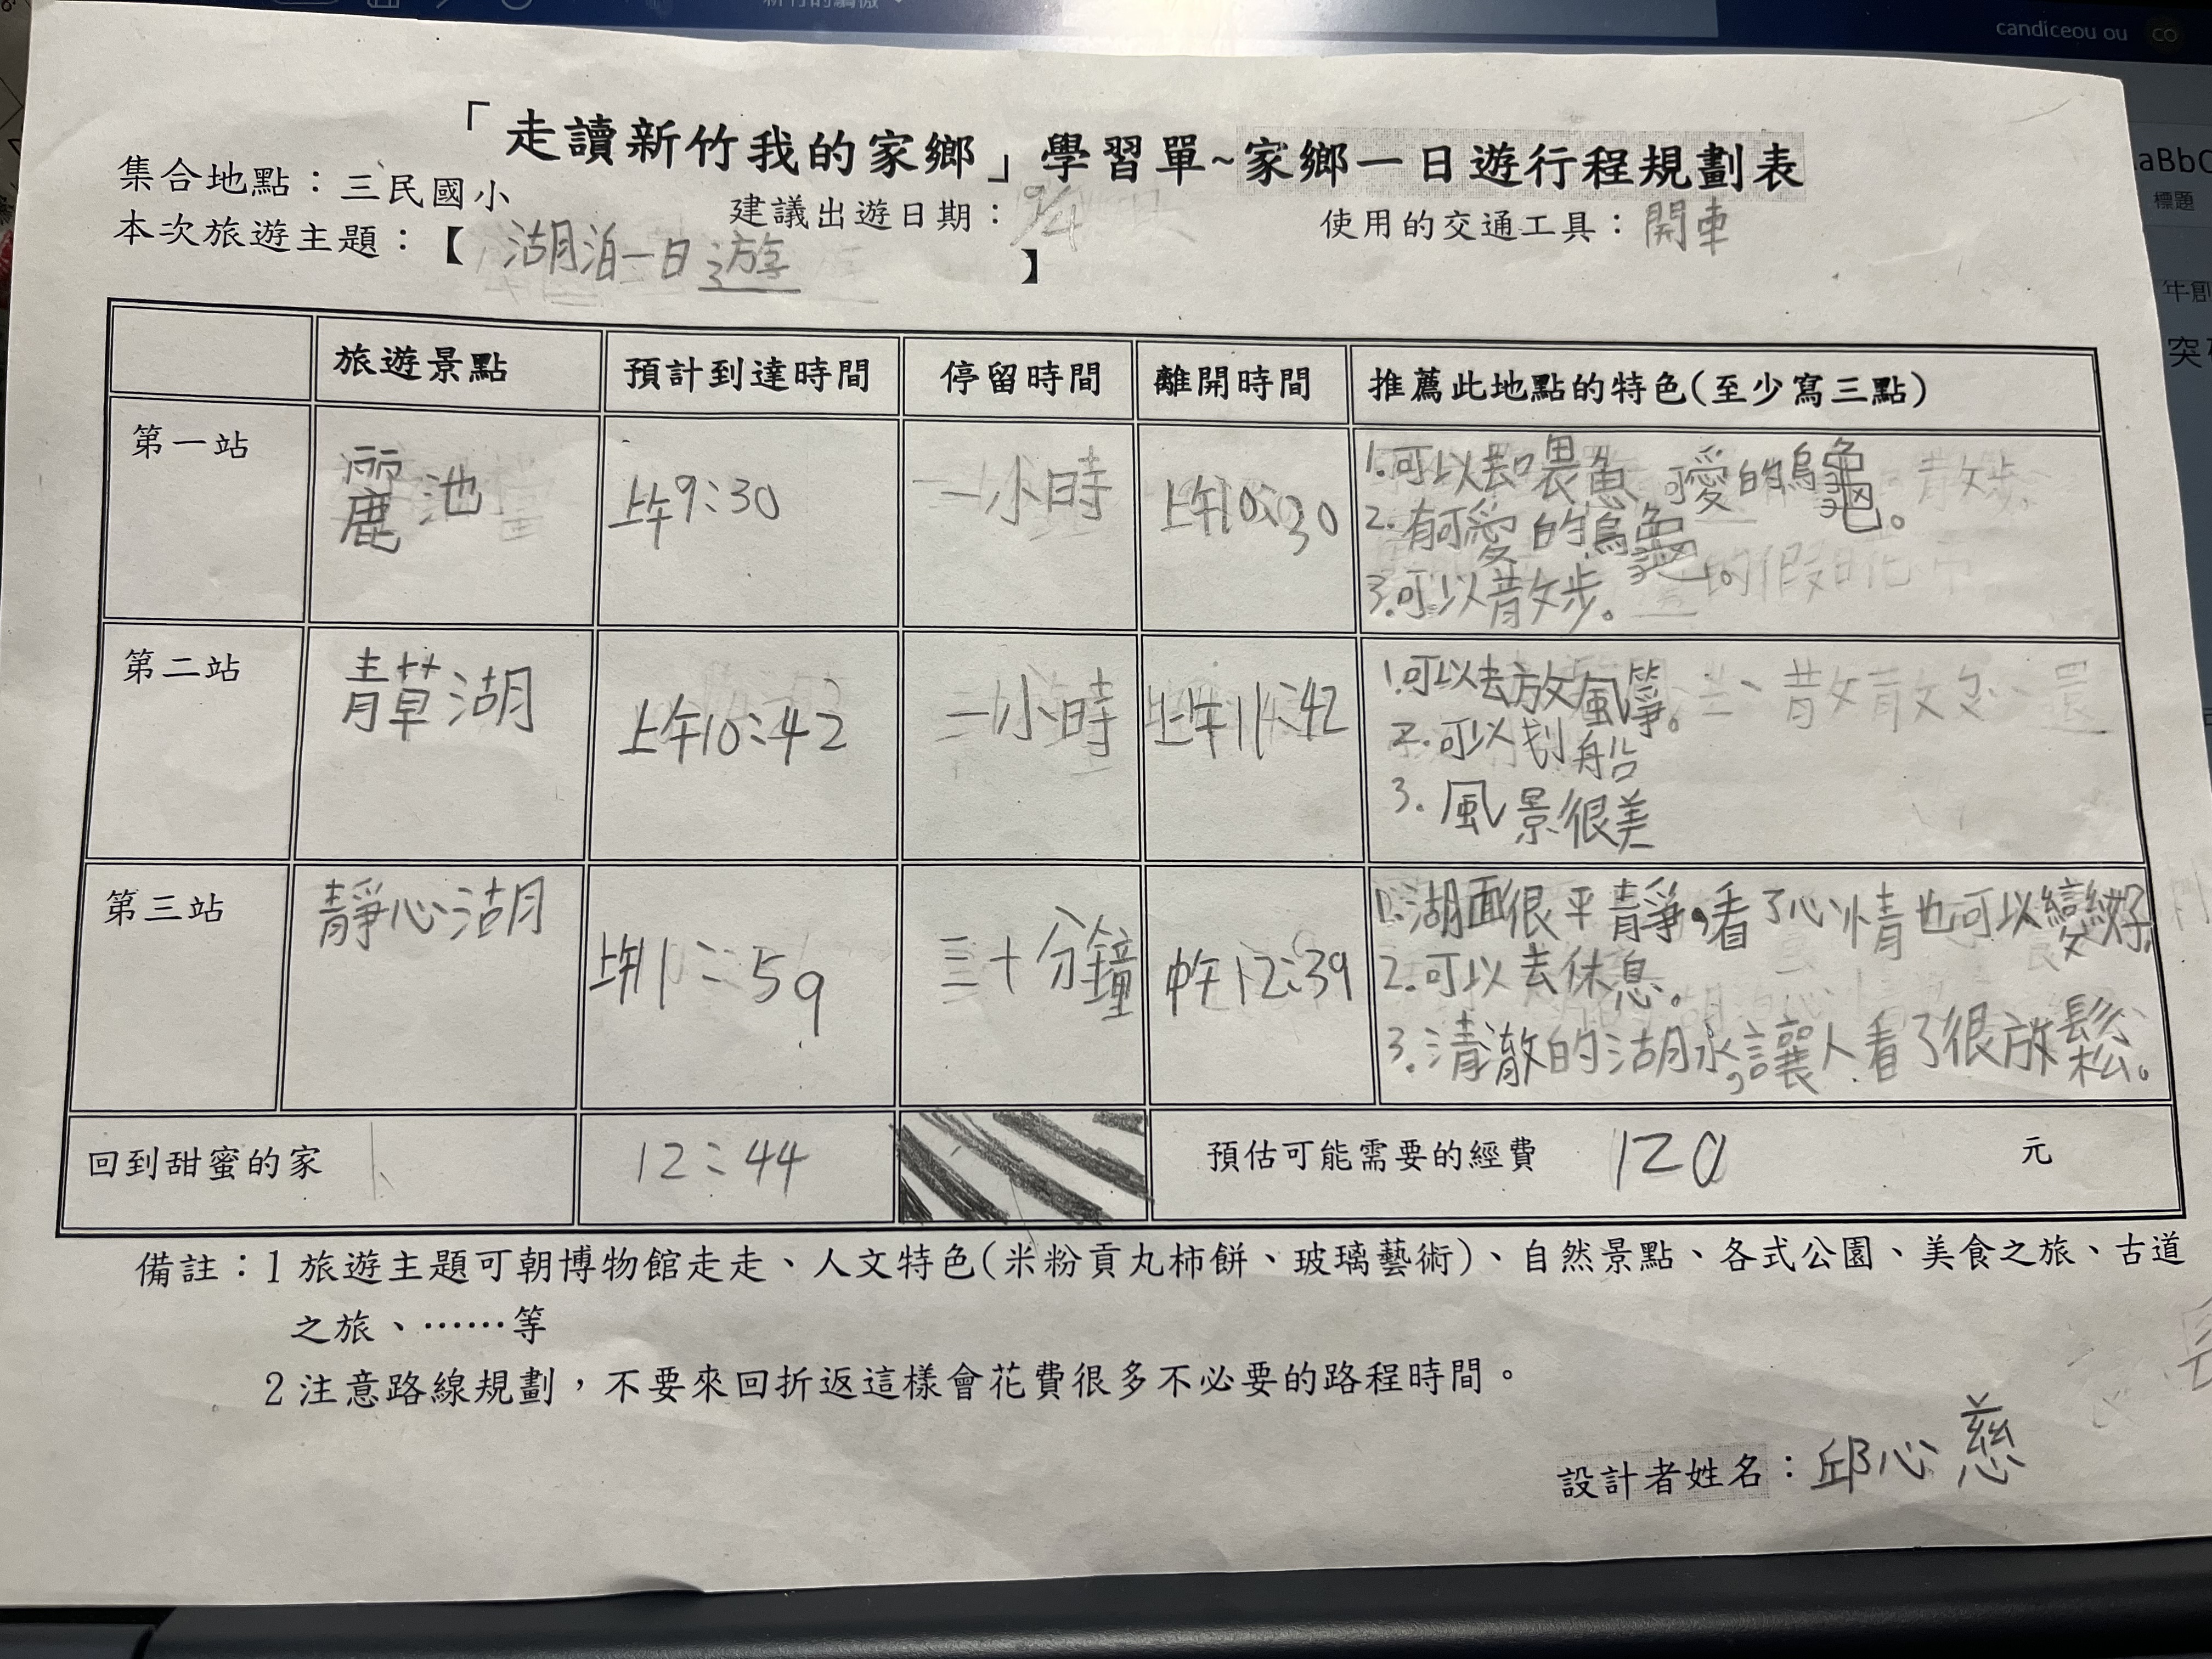 candiceou ou
CO
標題
「走讀新竹我的家鄉」學習單~家鄉一日遊行程規劃表
集合地點：三民國小
建議出遊日期：9/4
使用的交通工具：開車
本次旅遊主題：【湖泊一日遊】
旅遊景點 預計到達時間 停留時間 離開時間 推薦此地點的特色(至少寫三點)
第一站 麗池 上午9:30 一小時 上午10:30
1.可以去喂魚 可愛的烏龜。
2.有可愛的烏龜。
3.可以散步。
第二站 青草湖 上午10:42 一小時 上午11:42
1.可以去放風箏。
2.可以划船
3.風景很美
第三站 靜心湖 上午11:59 三十分鐘 中午12:39
1.湖面很平靜,看了心情也可以變好,
2.可以去休息。
3.清澈的湖水,讓人看了很放鬆。
回到甜蜜的家 12:44 預估可能需要的經費 120 元
備註：1 旅遊主題可朝博物館走走、人文特色(米粉貢丸柿餅、玻璃藝術)、自然景點、各式公園、美食之旅、古道
之旅、……等
2 注意路線規劃，不要來回折返這樣會花費很多不必要的路程時間。
設計者姓名：邱心慈